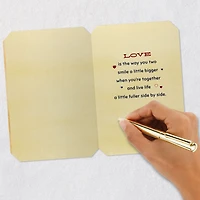 LOVE
is the way you two
smile a little bigger
when you're together
and live life
a little fuller side by side.